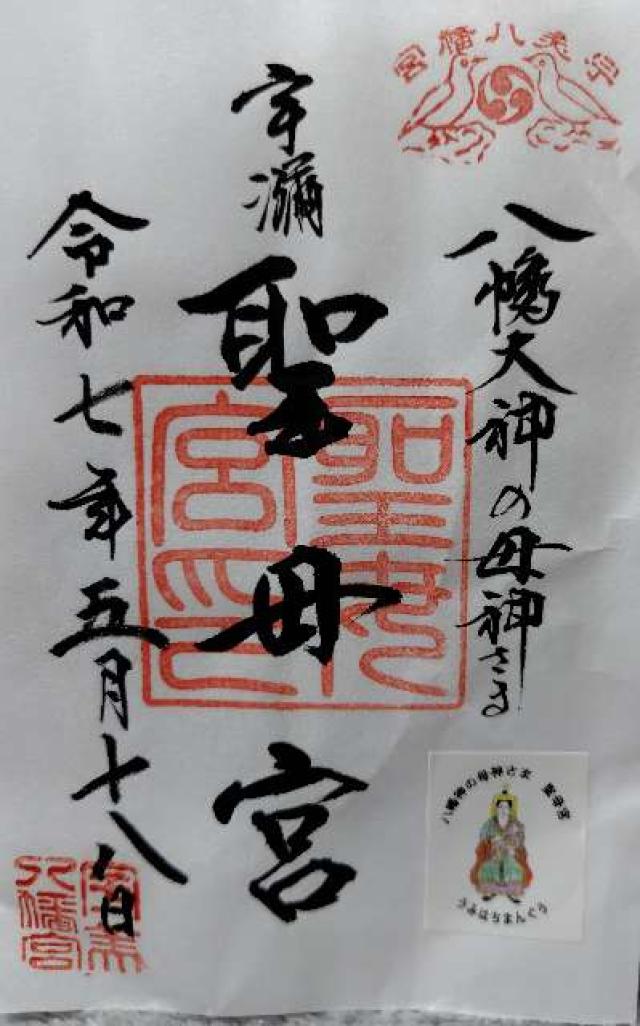 宇美八幡宮
八幡大神の母神さま
宇瀰
聖母宮
聖母宮印
令和七年五月十八日
宇美八幡宮
八幡神の母神さま 聖母宮
うみはちまんぐう